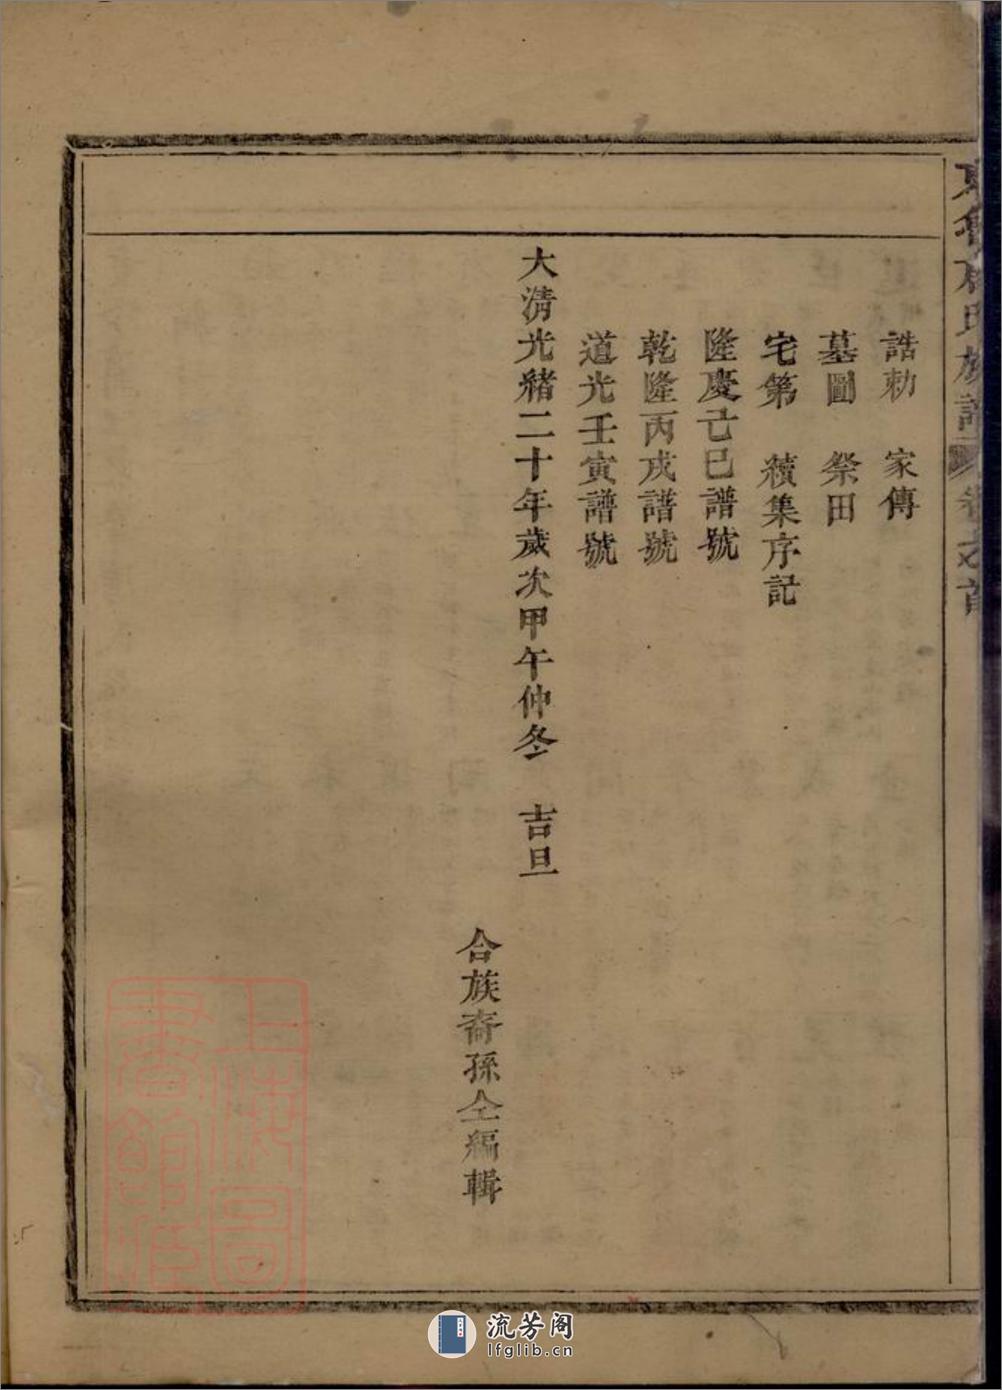 誥勅　家傳
墓圖　祭田
宅第　續集序記
隆慶己巳譜號
乾隆丙戌譜號
道光壬寅譜號
大清光緒二十年歲次甲午仲冬　吉旦
合族裔孫仝編輯
上海图書館藏
流芳阁
lfglib.cn